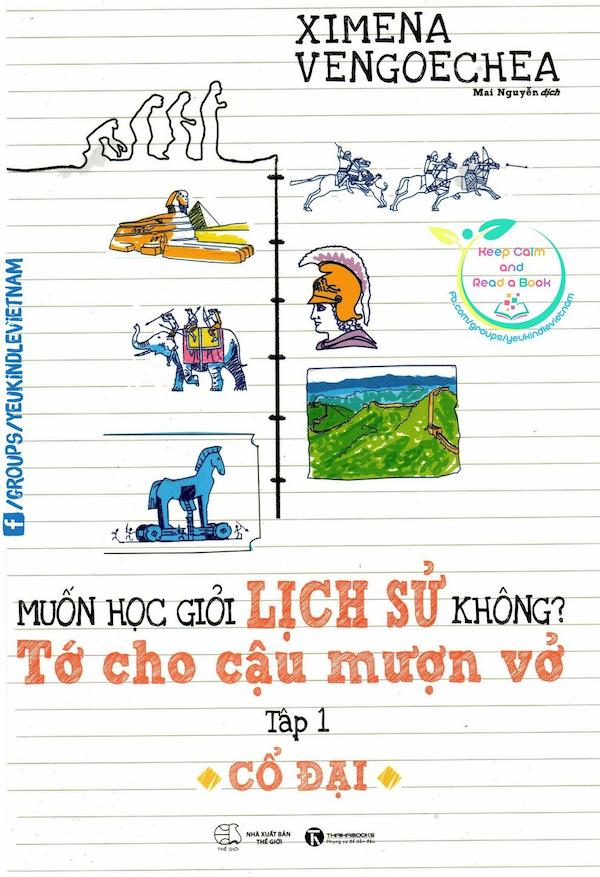 XIMENA
VENGOECHEA
Mai Nguyễn dịch
Keep Calm
and
Read a Book
Fb.com/groups/yeukindlevietnam
f/GROUPS/YEUKINDLEVIETNAM
MUỐN HỌC GIỎI LỊCH SỬ KHÔNG?
Tớ cho cậu mượn vở
Tập 1
CỔ ĐẠI
THẾ GIỚI
NHÀ XUẤT BẢN
THẾ GIỚI
THAIHABOOKS
Phụng sự để dẫn đầu